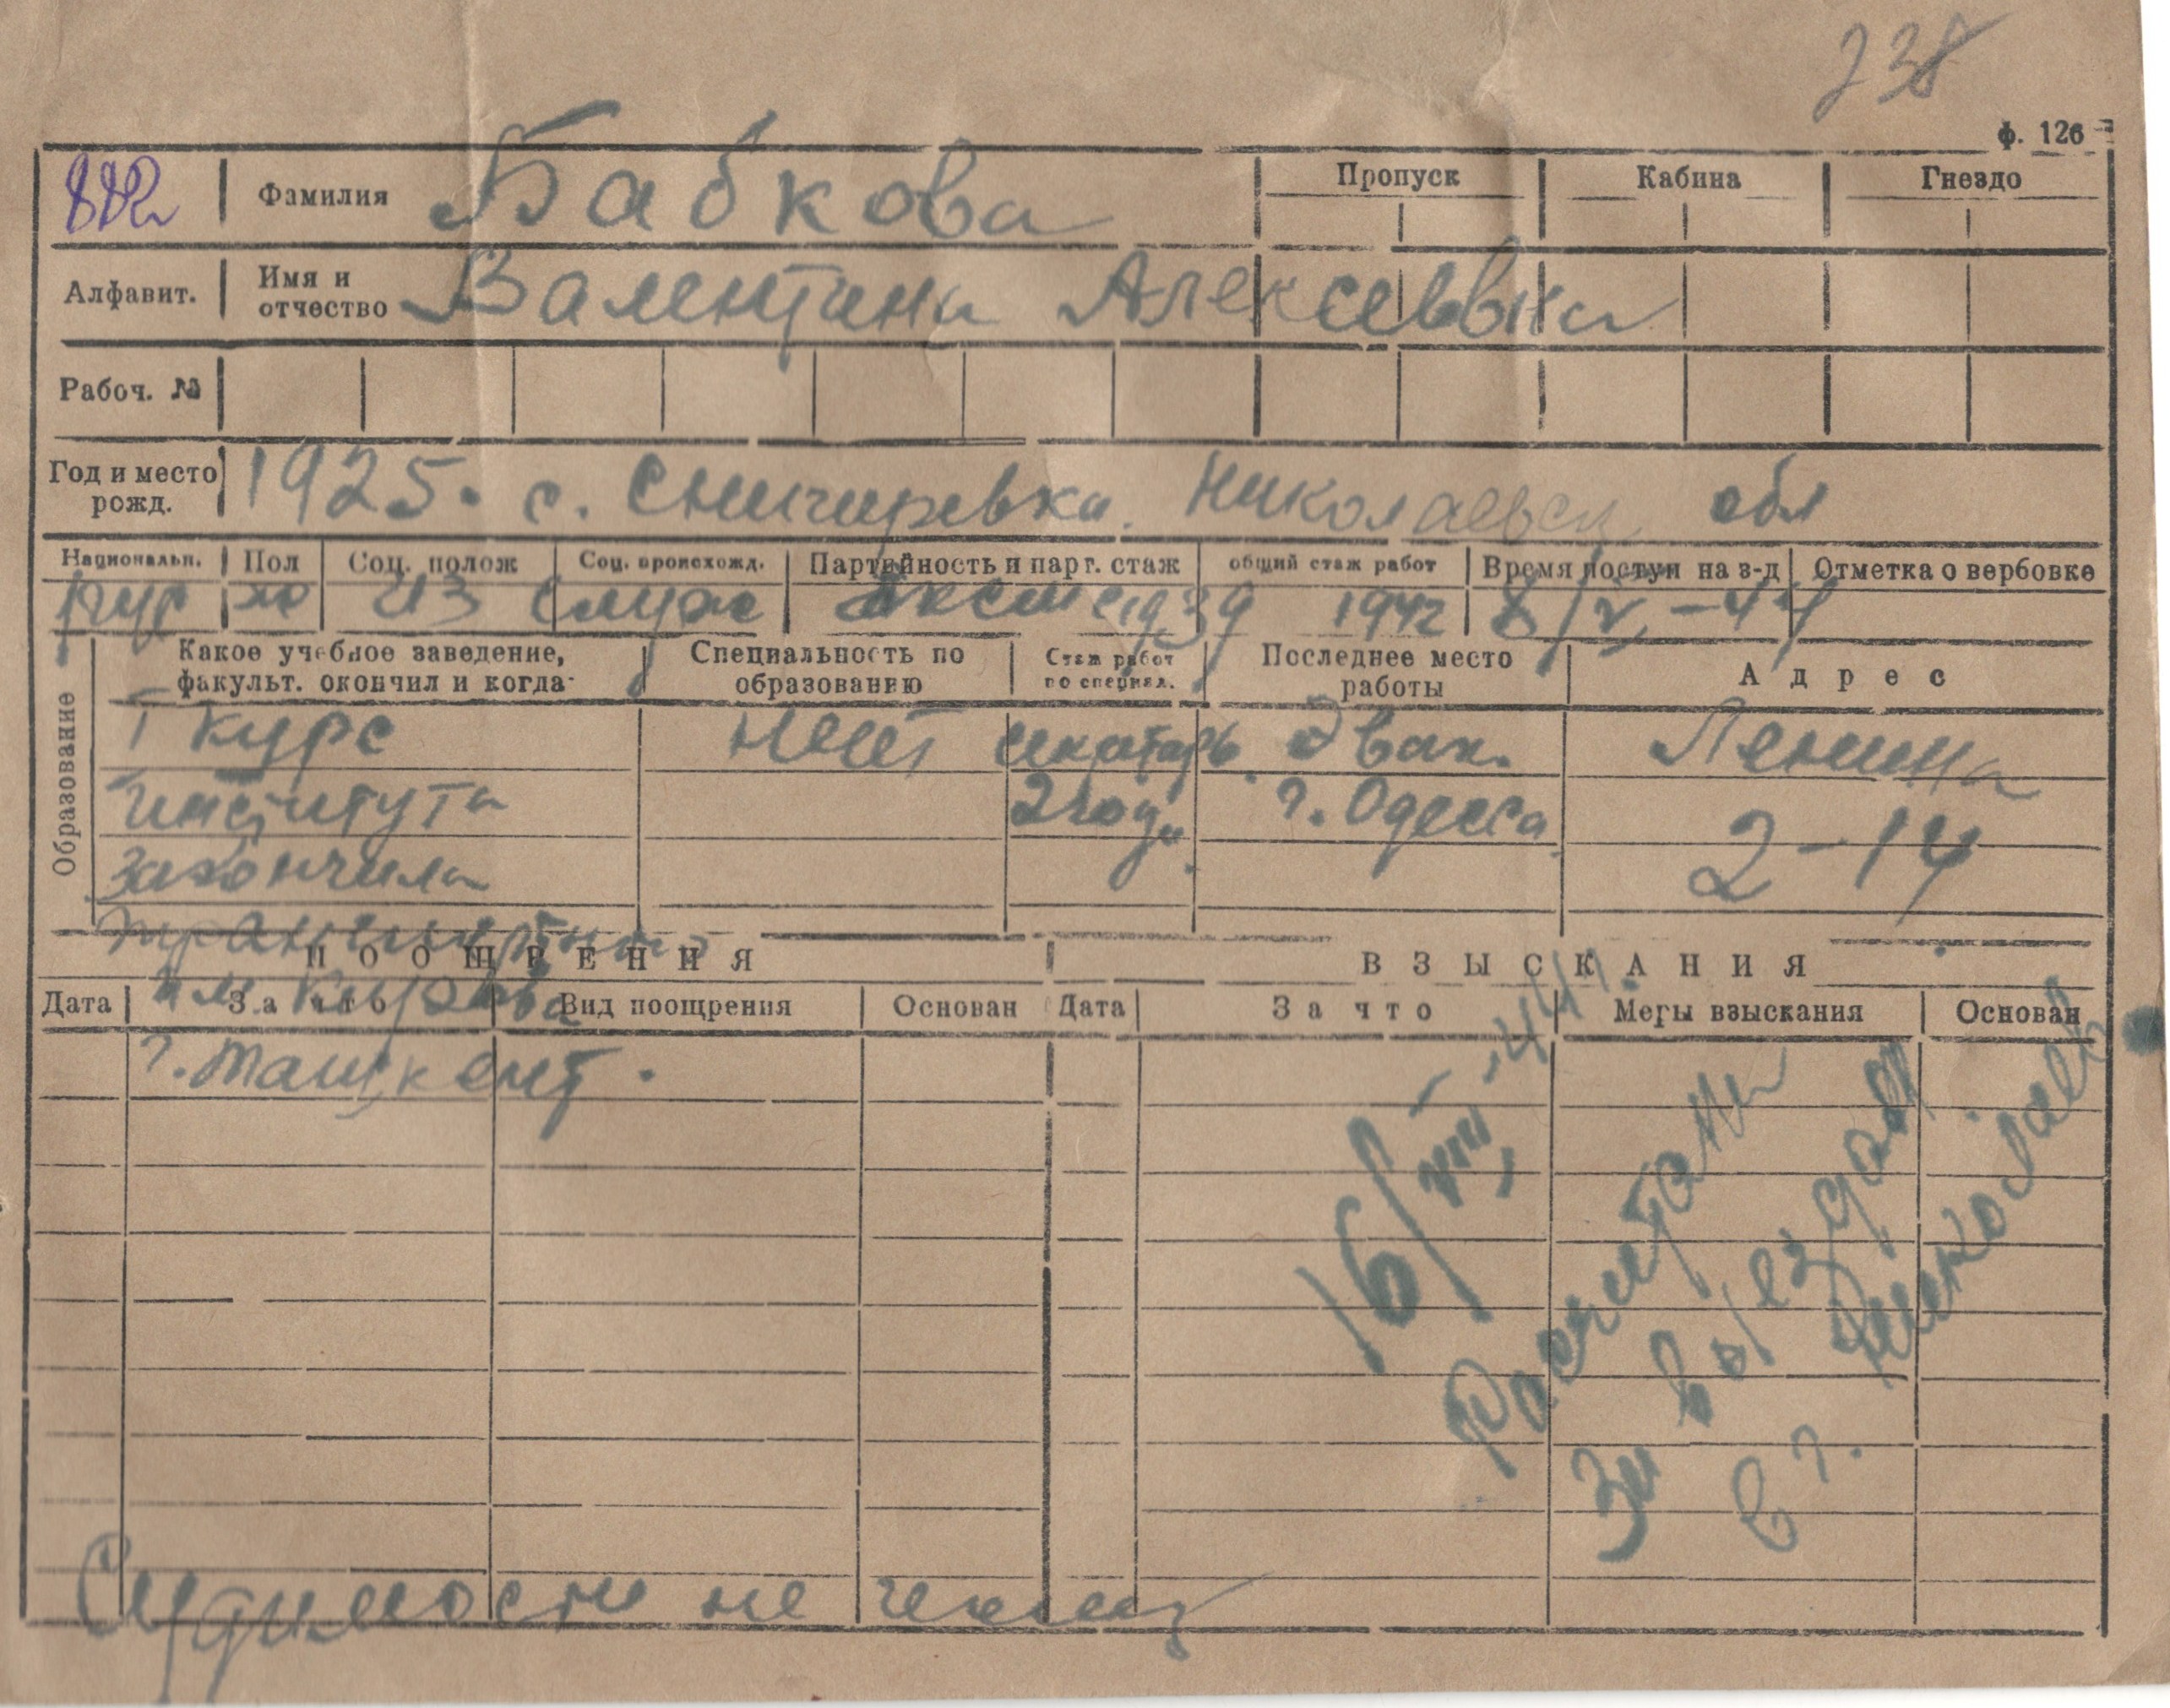 738
ф. 126
Фамилия Бабкова Пропуск Кабина Гнездо
Алфавит. Имя и отчество Валентина Алексеевна
Рабоч. №
Год и место рожд. 1925. с. Снигиревка. Николаевск обл
Национальн. Пол Соц. полож Соц. происхожд. Партийность и парт. стаж общий стаж работ Время поступ на з-д Отметка о вербовке
рус ж из служ с 1939 1942
Образование
Какое учебное заведение, факульт. окончил и когда Специальность по образованию Стаж работ по специал. Последнее место работы Адрес
I курс нет секретарь Эвак. Ленина
института 2 года. г. Одесса. 2-14
закончила
им. Кирова
г. Ташкент.
ПООЩРЕНИЯ ВЗЫСКАНИЯ
Дата За что Вид поощрения Основан Дата За что Меры взыскания Основан
16/VIII-44 г.
Расчитана
За выездом
в г. Николаев
Судимости не имеет